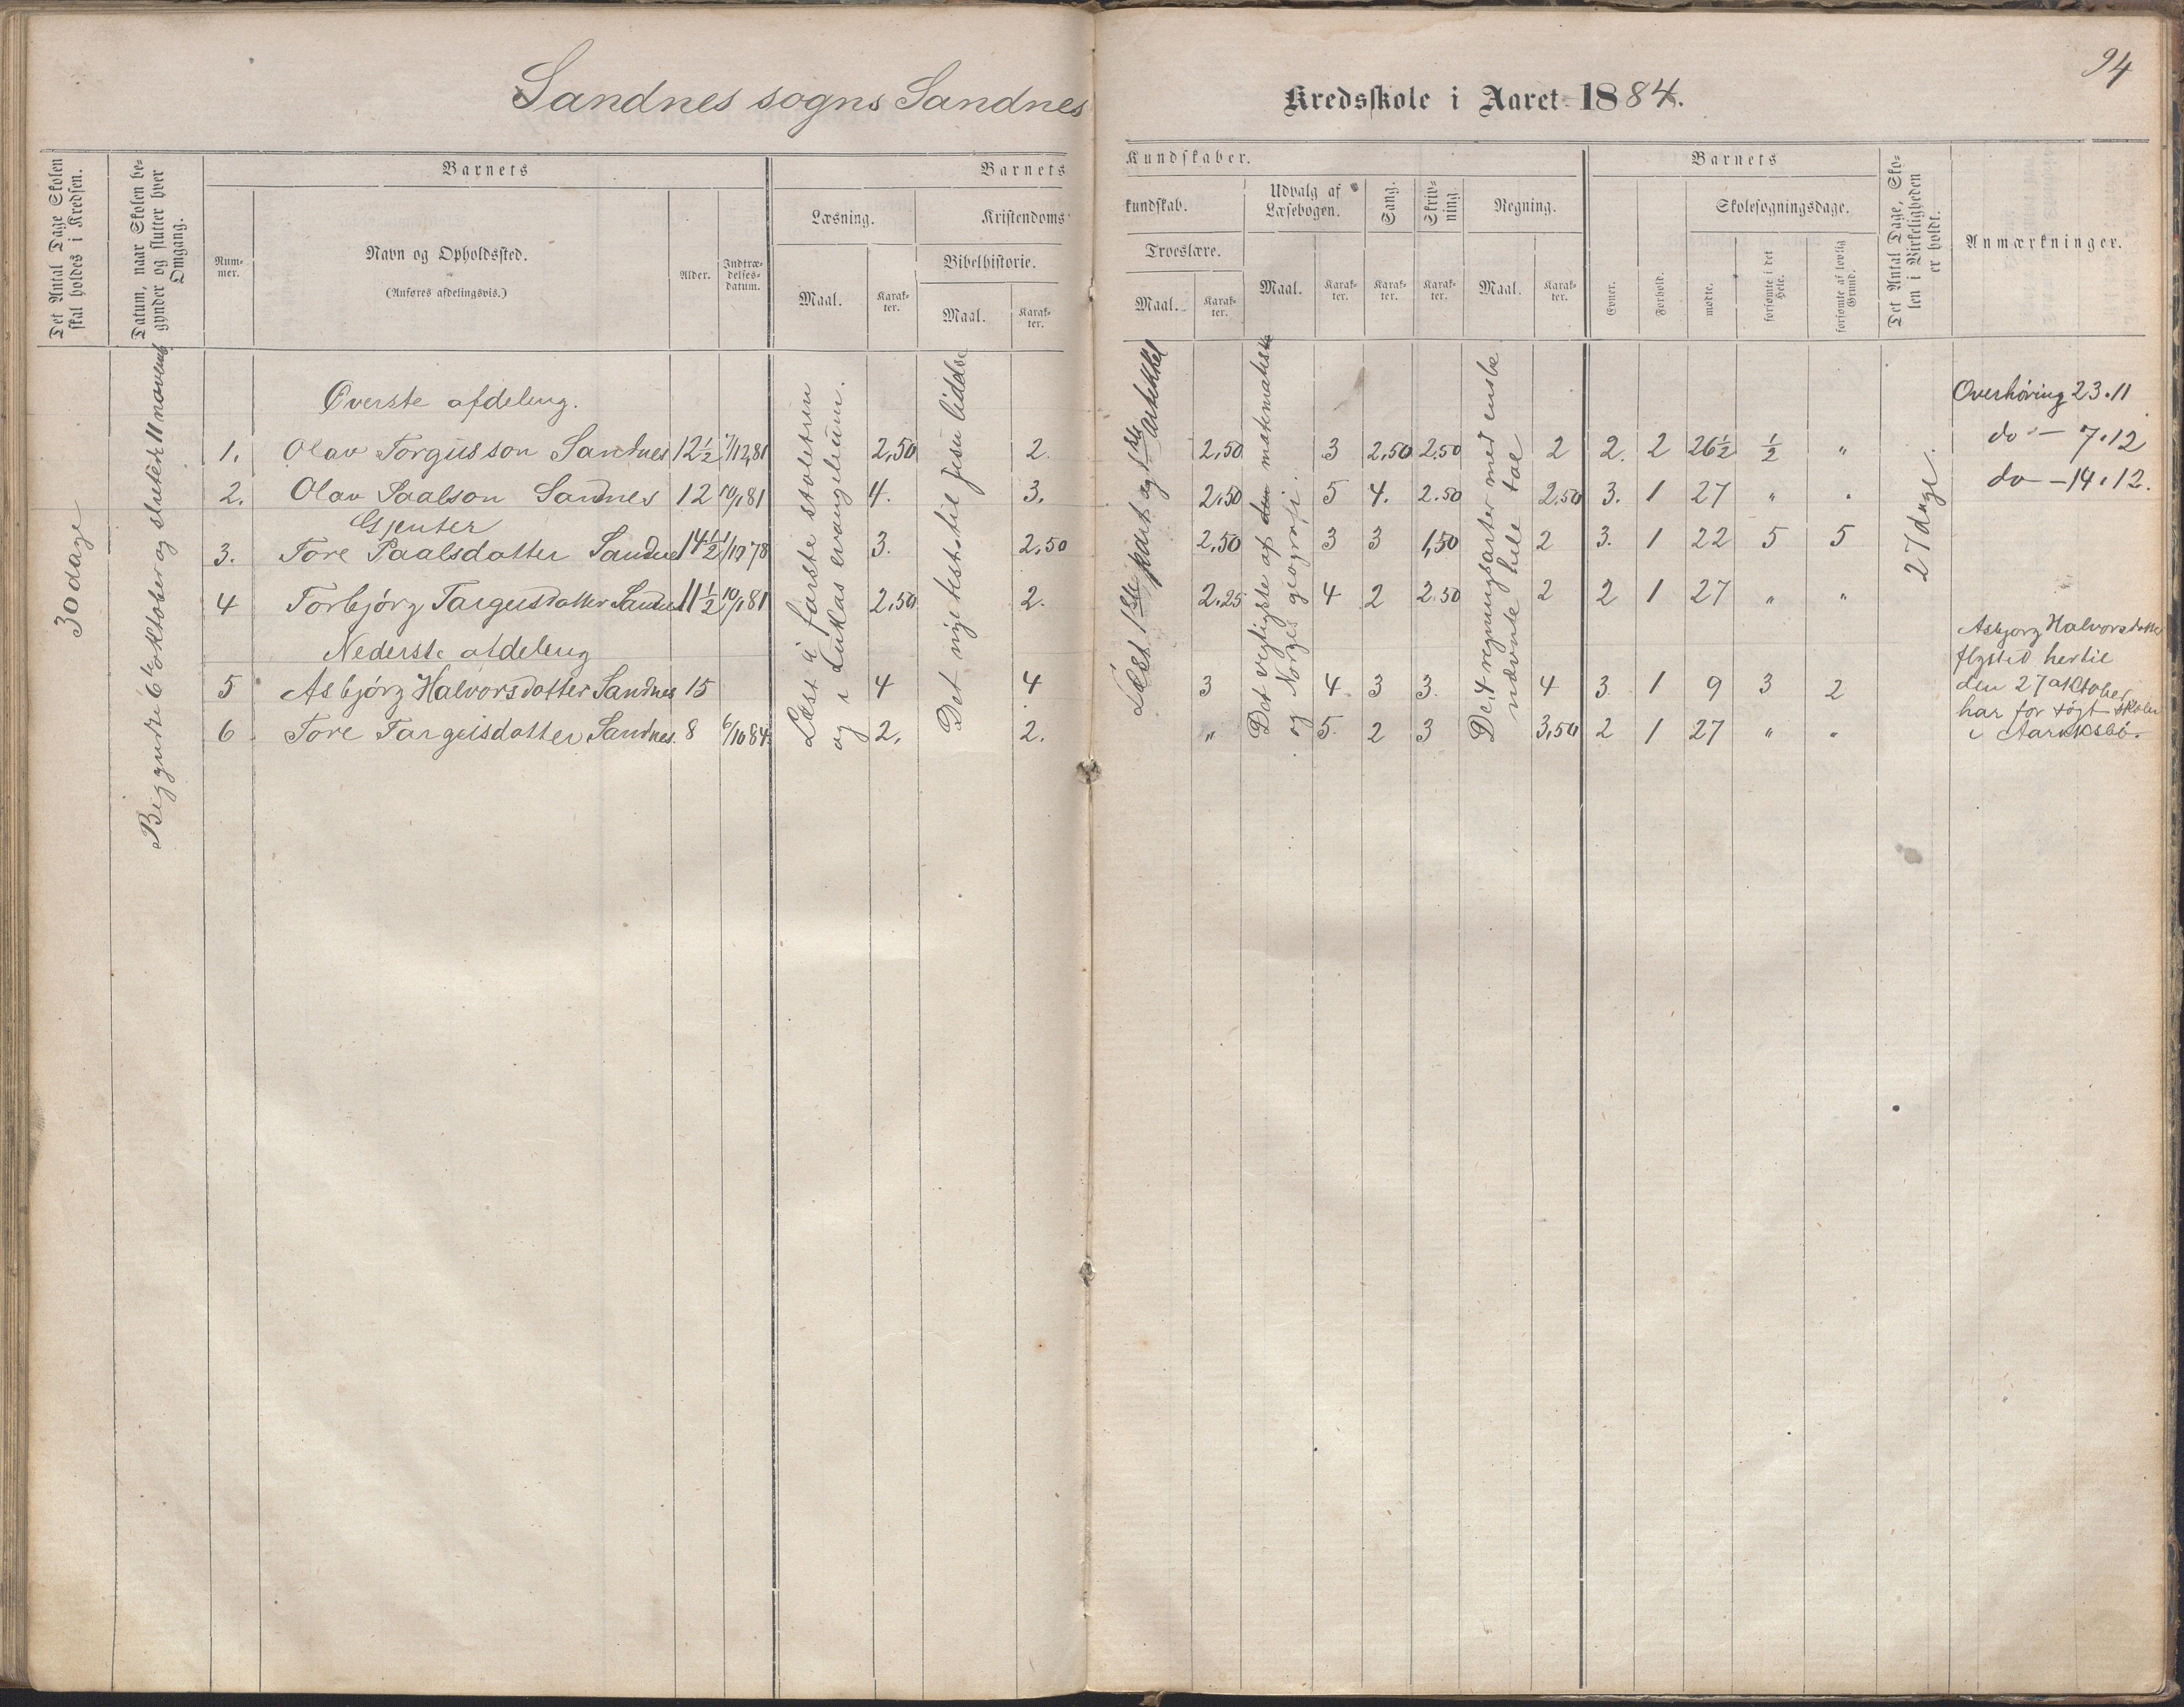 94
Sandnes sogns Sandnes Kredsskole i Aaret 1884.
Det Antal Dage Skolen skal holdes i Kredsen.
Datum, naar Skolen be-
gynder og slutter hver
Omgang.
Barnets
Num-
mer.
Navn og Opholdssted.
(Anføres afdelingsvis.)
Alder.
Indtræ-
delses-
datum.
Barnets Kundskaber.
Læsning.
Maal.
Karak-
ter.
Kristendoms kundskab.
Bibelhistorie.
Maal.
Karak-
ter.
Troeslære.
Maal.
Karak-
ter.
Udvalg af
Læsebogen.
Maal.
Karak-
ter.
Sang.
Karak-
ter.
Skriv-
ning.
Karak-
ter.
Regning.
Maal.
Karak-
ter.
Barnets
Evner.
Forhold.
Skolesøgningsdage.
mødte.
forsømte i det
Hele.
forsømte af lovlig
Grund.
Det Antal Dage, Sko-
len i Virkeligheden
er holdt.
Anmærkninger.
30 dage
Begyndte 6te oktober og sluttet 11 novemb
Læst i förste stoletren
og i Lukas evangelium.
Det nye test. til Jesu lidelse
Læst 1ste part og 1ste artikkel
Det vigtigste af den matematiske
og Norges geografi.
De 4 regningsarter med enske
nævnte hele tal
27 dage.
Øverste afdeling.
1. Olav Torgusson Sandnes 12½ 7/12 81 2,50 2. 2,50 3 2,50 2.50 2 2. 2 26½ ½ "
2. Olav Paalson Sandnes 12 10/1 81 4. 3. 2,50 5 4. 2.50 2,50 3. 1 27 " "
Gjenter
3. Tore Paalsdatter Sandne 14½ 1/12 78 3. 2,50 2,50 3 3 1,50 2 3. 1 22 5 5
4 Torbjörg Targusdatter Sandn 11½ 10/1 81 2,50 2. 2,25 4 2 2.50 2 2 1 27 " "
Nederste afdeling
5 Asbjörg Halvorsdatter Sandnes 15 4 4 3 4 3 3. 4 3 1 9 3 2
6 Tore Targusdatter Sandnes. 8 6/10 84 2, 2. " 5. 2 3 3,50 2 1 27 " "
Overhøring 23.11
do - 7.12
do - 14.12.
Asbjorg Halvorsdatter
flyttet hertil
den 27 oktober
har for søgt skolen
i Aaraksbö.